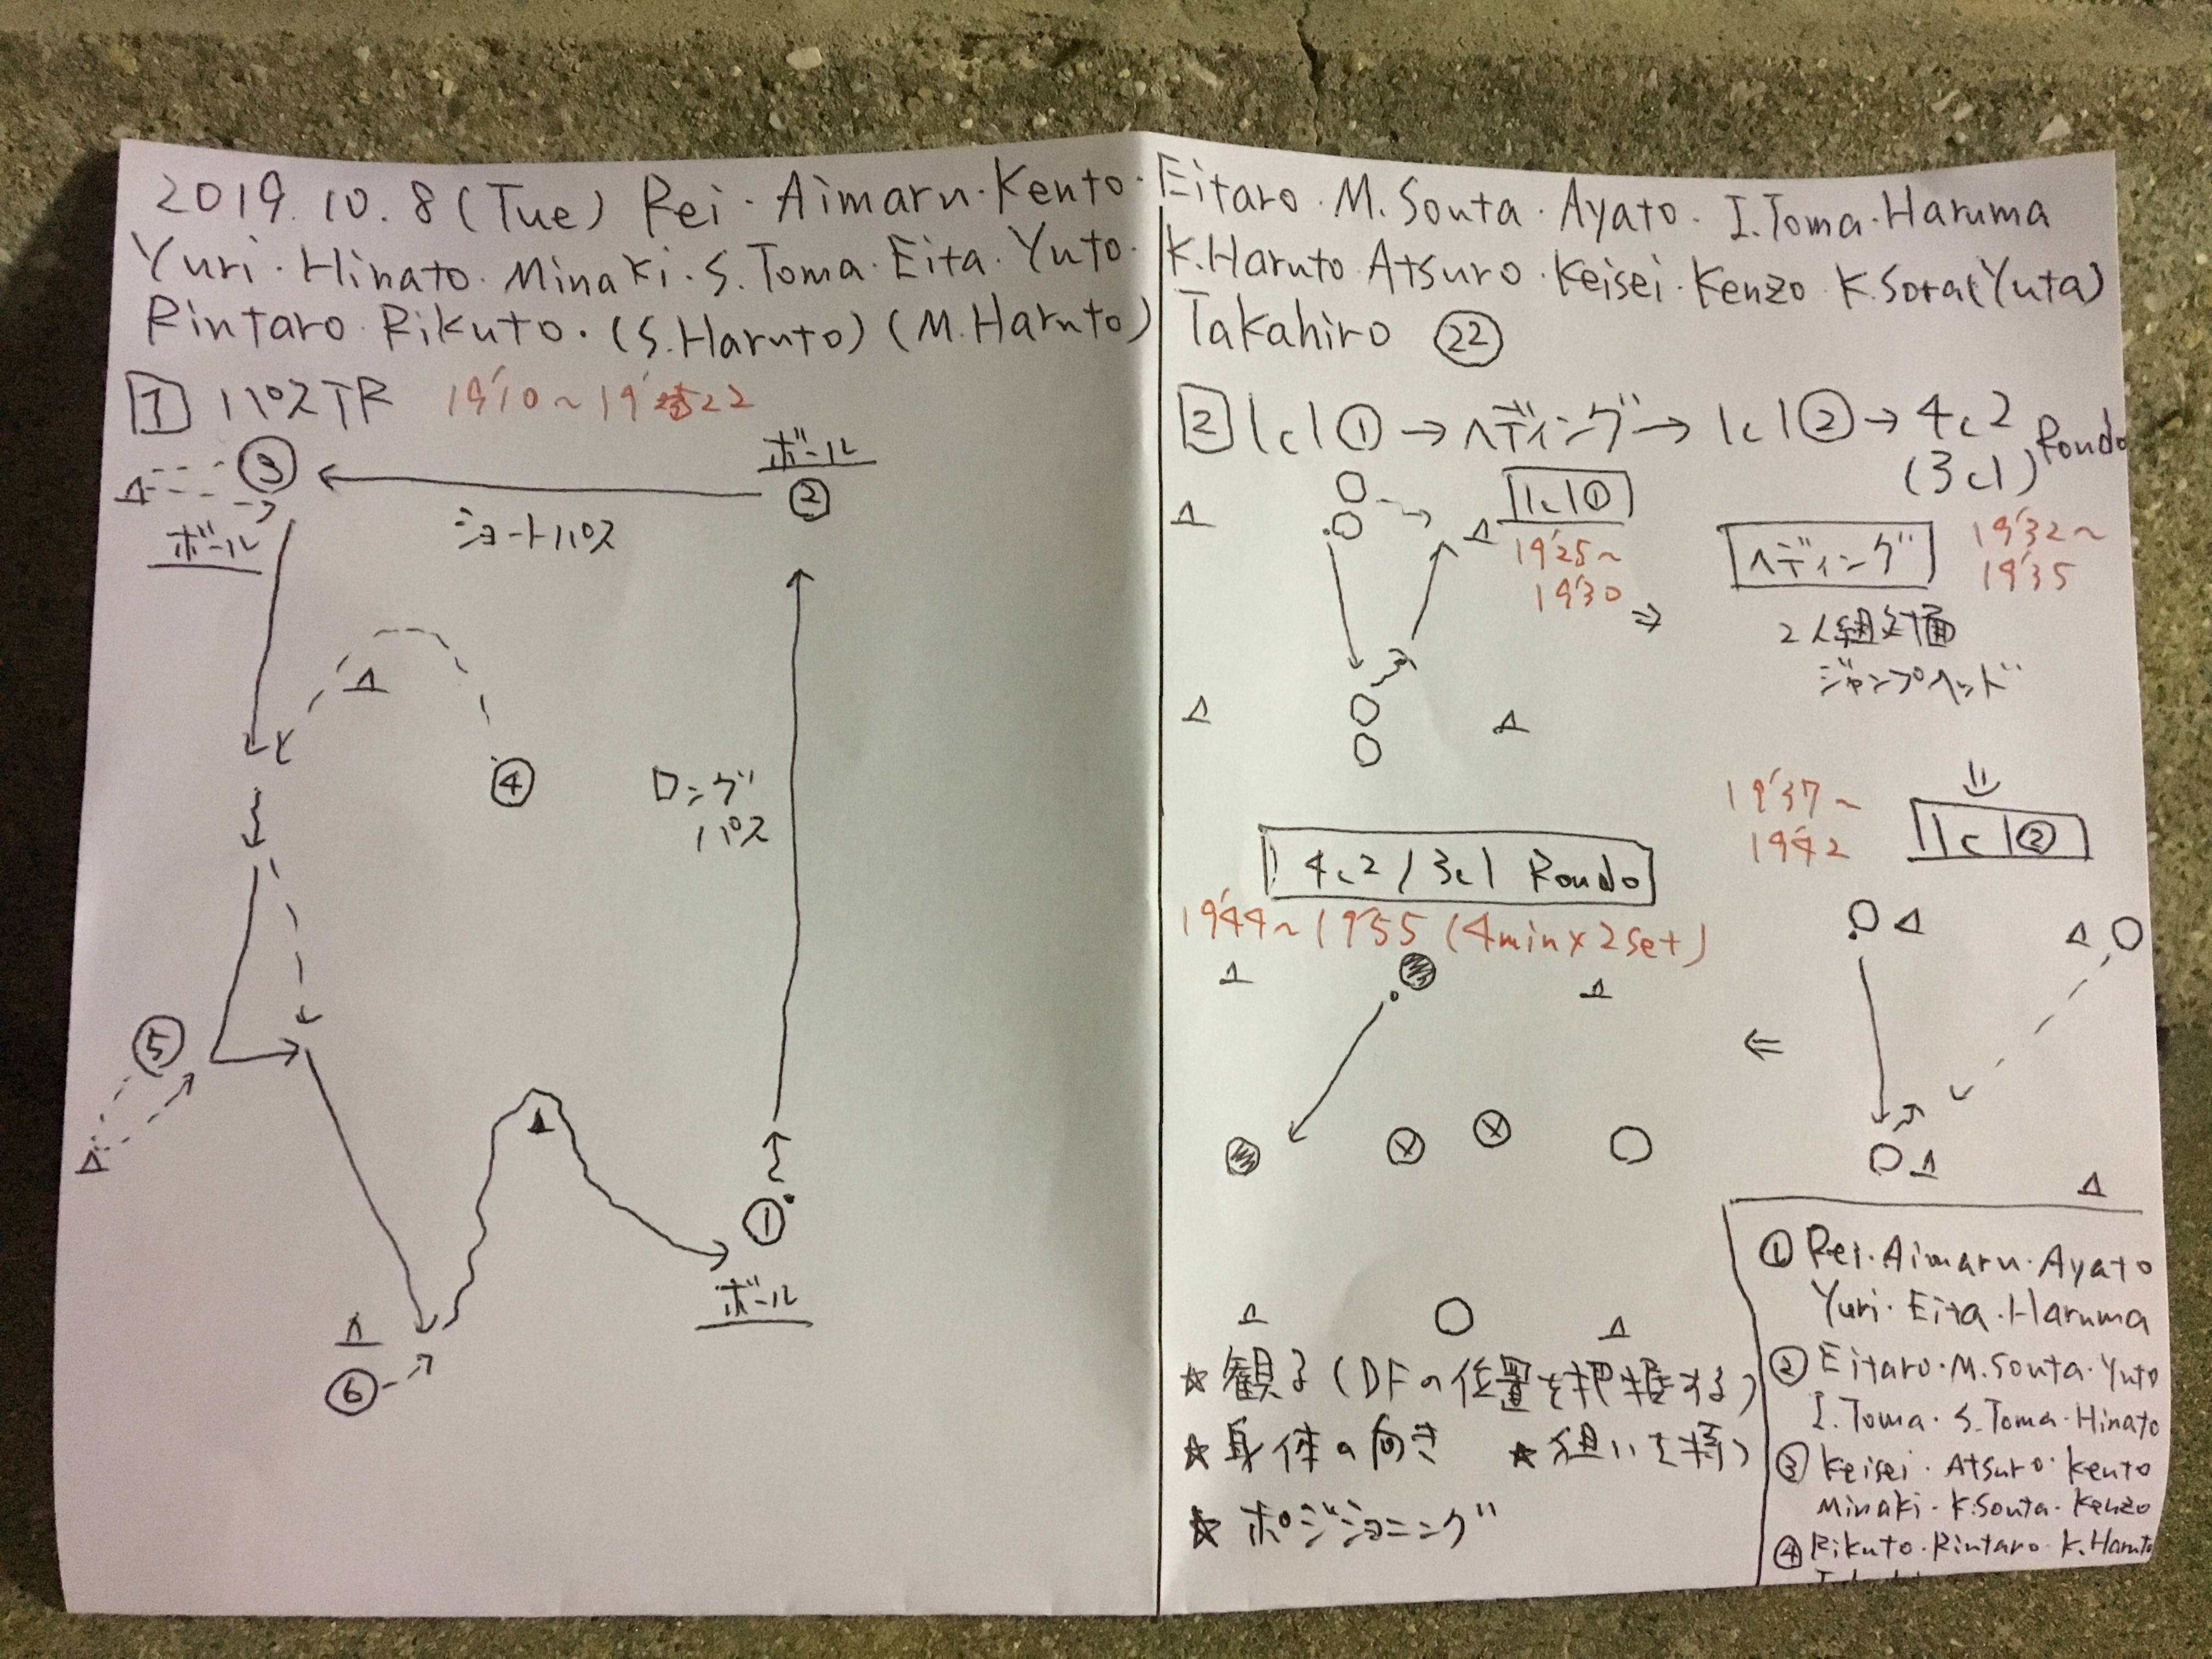 2019.10.8(Tue) Rei・Aimaru・Kento・Eitaro・M.Souta・Ayato・I.Toma・Haruma
Yuri・Hinato・Minaki・S.Toma・Eita・Yuto・K.Haruto Atsuro・Keisei・Kenzo K.Sota(Yuta)
Rintaro・Rikuto・(S.Haruto)(M.Haruto) Takahiro ㉒
1 パスTR 19'10～19'22
③
ボール
②
ショートパス
ボール
④
ロング
パス
⑤
①
ボール
⑥
2 1c1① → ヘディング → 1c1② → 4c2 Rondo
(3c1)
1c1①
19'25～
19'30
⇒
ヘディング
19'32～
19'35
2人組対面
ジャンプヘッド
⇓
19'37～
19'42
1c1②
⇐
4c2/3c1 Rondo
19'44～19'55(4min×2set)
★観る(DFの位置を把握する)
★身体の向き ★狙いを持つ
★ポジショニング
① Rei・Aimaru・Ayato
Yuri・Eita・Haruma
② Eitaro・M.Souta・Yuto
I.Toma・S.Toma・Hinato
③ Keisei・Atsuro・Kento
Minaki・K.Souta・Kenzo
④ Rikuto・Rintaro・K.Haruto